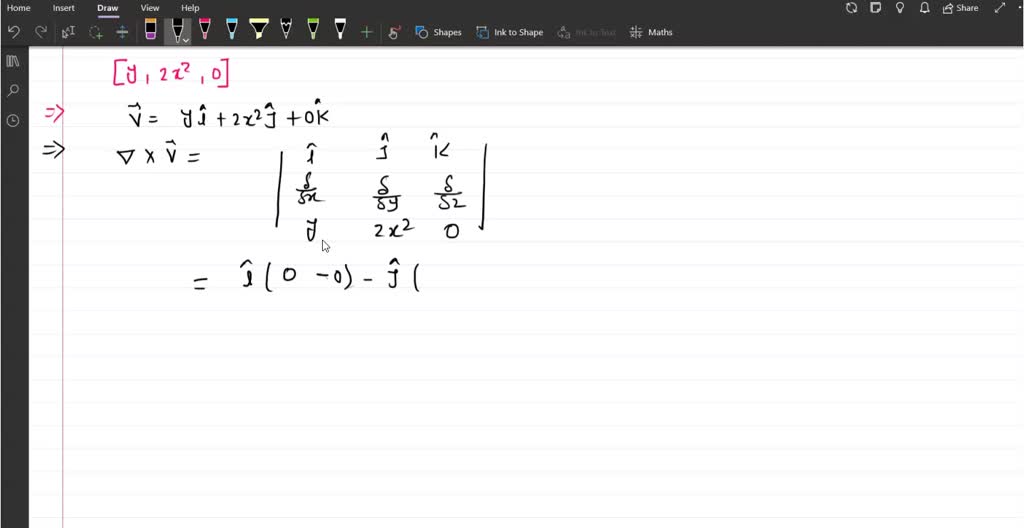 Home Insert Draw View Help Share
Shapes Ink to Shape Ink to Text Maths
[y, 2x², 0]
=> V⃗ = yî + 2x²ĵ + 0k̂
=> ∇ × V⃗ = | î ĵ k̂ |
δ/δx δ/δy δ/δz
y 2x² 0
= î(0 - 0) - ĵ(